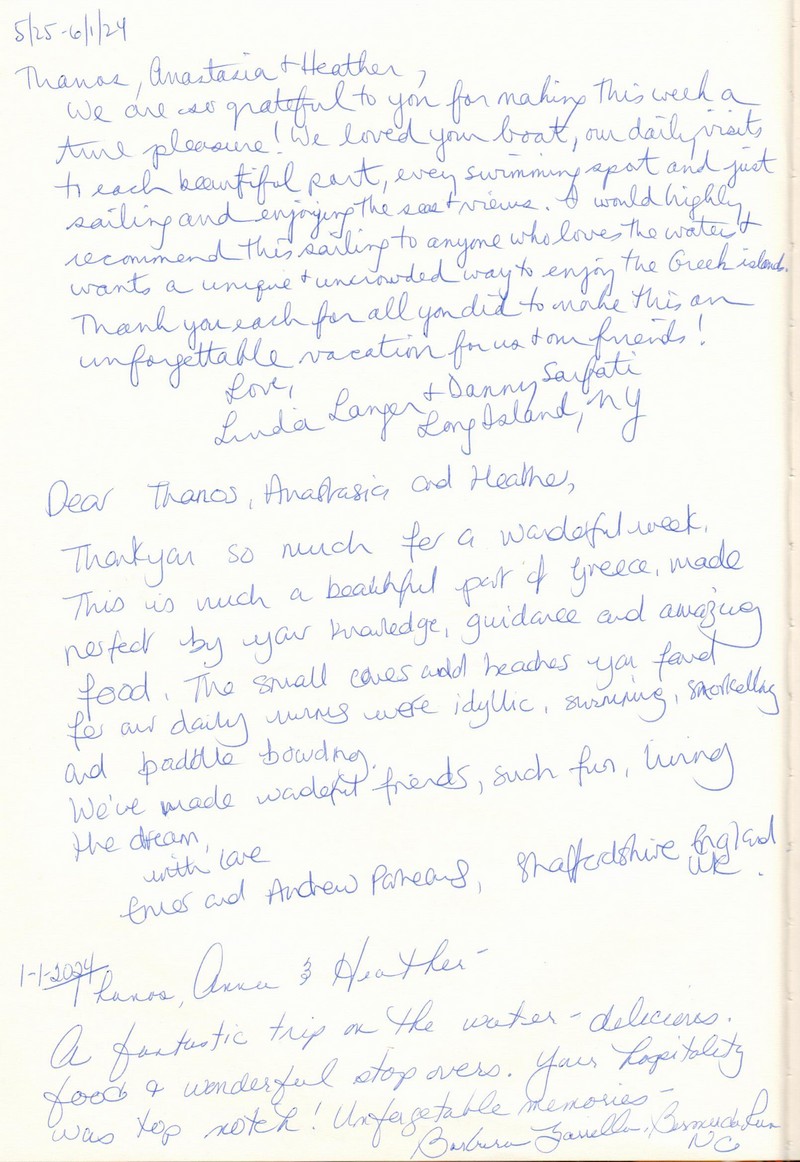 5/25-6/1/24
Thanos, Anastasia + Heather,
We are so grateful to you for making this week a
true pleasure! We loved your boat, our daily visits
to each beautiful port, every swimming spot and just
sailing and enjoying the sea + views. I would highly
recommend this sailing to anyone who loves the water +
wants a unique + uncrowded way to enjoy the Greek islands.
Thank you each for all you did to make this an
unforgettable vacation for us + our friends!
Love,
Linda Langer + Danny Sarfati
Long Island, NY
Dear Thanos, Anastasia and Heather,
Thank you so much for a wonderful week.
This is such a beautiful part of Greece, made
perfect by your knowledge, guidance and amazing
food. The small coves and beaches you found
for our daily swims were idyllic, swimming, snorkelling
and paddle boarding.
We've made wonderful friends, such fun, living
the dream,
with love
and Andrew Staffordshire England
UK.
1-1-2024
Thanos, Anna & Heather-
A fantastic trip on the water - delicious
food & wonderful stop overs. Your hospitality
was top notch! Unforgetable memories-
Barbara Bermuda Run
NC